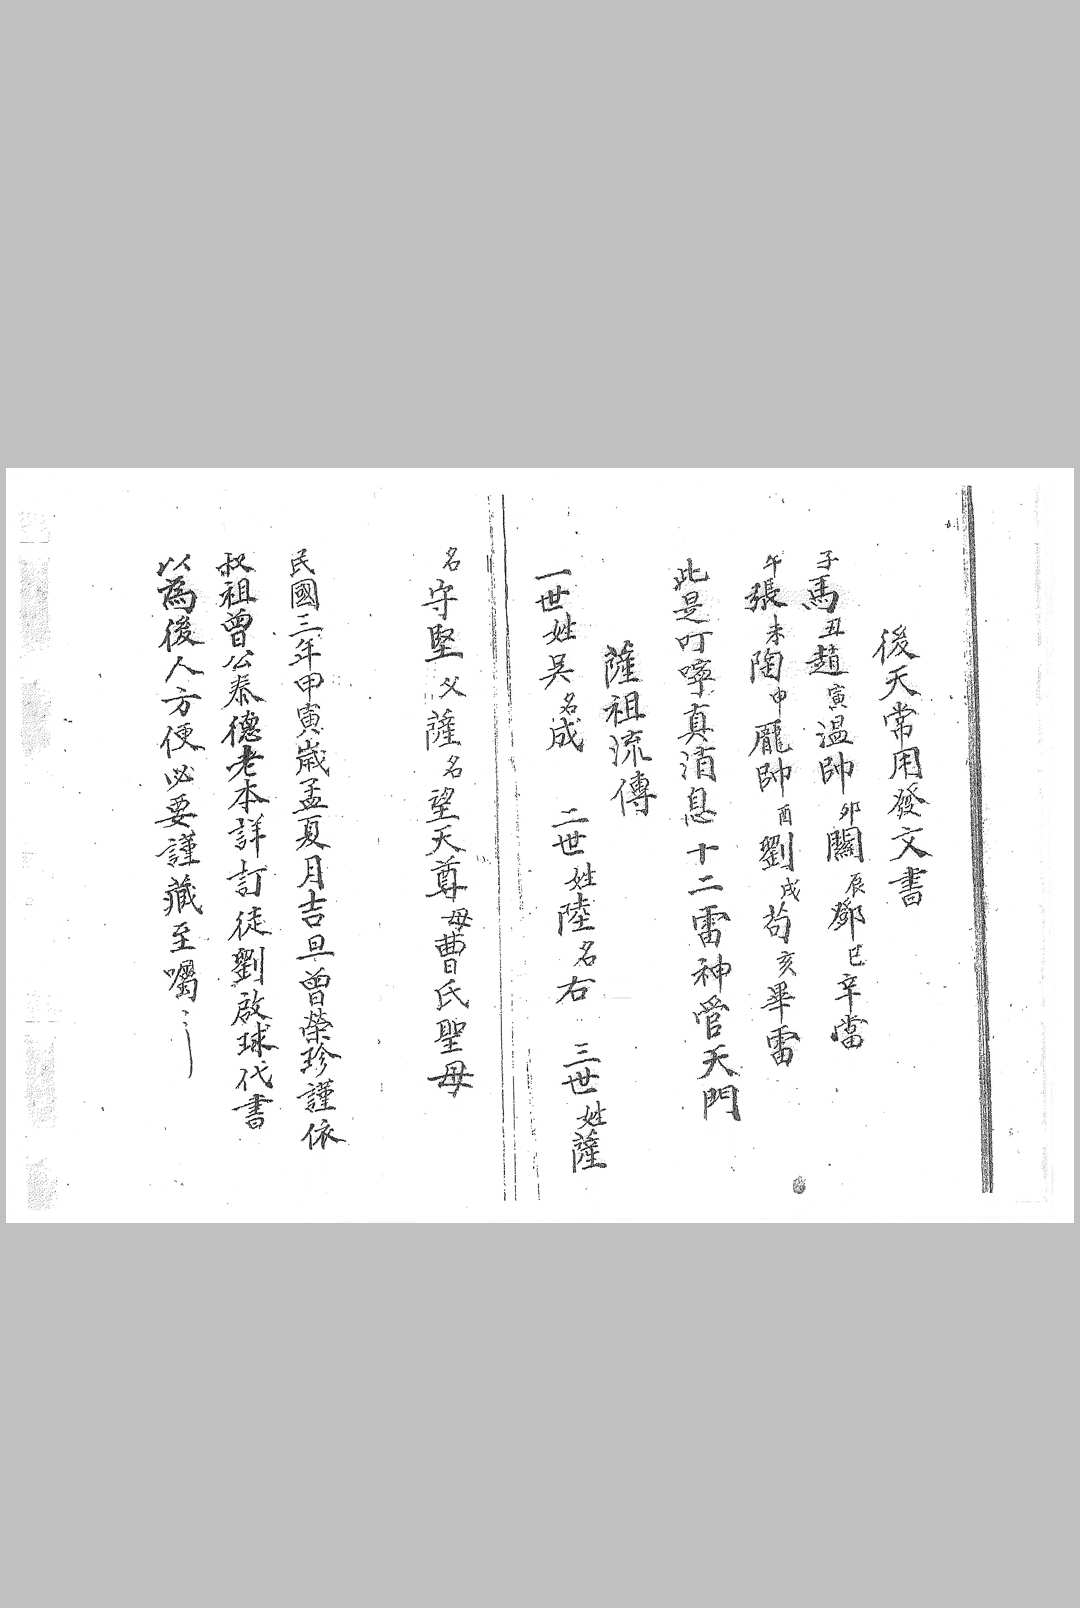 後天常用發文書
子馬丑趙寅温帥卯關辰鄧巳辛當
午張未陶申龐帥酉劉戌苟亥畢雷
此是叮嚀真消息十二雷神管天門
薩祖流傳
一世姓吳名成 二世姓陸名右 三世姓薩
名守堅父薩名望天尊母曹氏聖母
民國三年甲寅歲孟夏月吉旦曾榮珍謹依
叔祖曾公泰德老本詳訂徒劉啟球代書
以為後人方便必要謹藏至囑